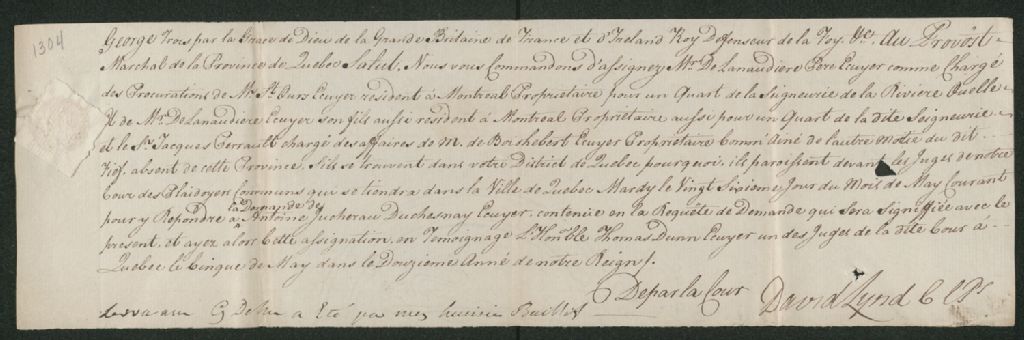 1304
George Trois par la Grace de Dieu de la Grande Bretaine de France et d'Ireland Roy Defenseur de la Foy. &ca. Au Provôst
Marchal de la Province de Quebec Salut. Nous vous Commandons d'assigner Mr. De Lanaudiere Pere Ecuyer comme Chargé
des Procurations de Mr. St. Ours Ecuyer resident à Montreal Propriétaire pour un Quart de la Seigneurie de la Riviere Ouelle
Mr. De Lanaudiere Ecuyer son fils aussi resident à Montreal Propriétaire aussi pour un Quart de la dite Seigneurie
et le Sr. Jacques Perrault chargé des affaires de M. de Boishebert Ecuyer Propriétaire Comm' Ainé de l'autre Motié du dit
Fief. absent de cette Province. S'ils se trouvent dans votre District de Quebec pourquoi, ils paroissent devant les Juges de notre
Cour des Plaidoyers Communs qui se tiendra dans la Ville de Quebec Mardy le Vingt Sixieme Jour du Mois de May Courant
pour y Repondre à la Demande de Antoine Juchereau Duchesnay Ecuyer. contenüe en la Requête de Demande qui sera signiffiée avec le
present, et ayez alors Cette assignation, en Temoignage L'Honble. Thomas Dunn Ecuyer un des Juges de la dite Cour à
Quebec le Cinque de May dans le Douzieme Anné de notre Reign
De par la Cour
David Lynd C C P
a Eté par moy huissier